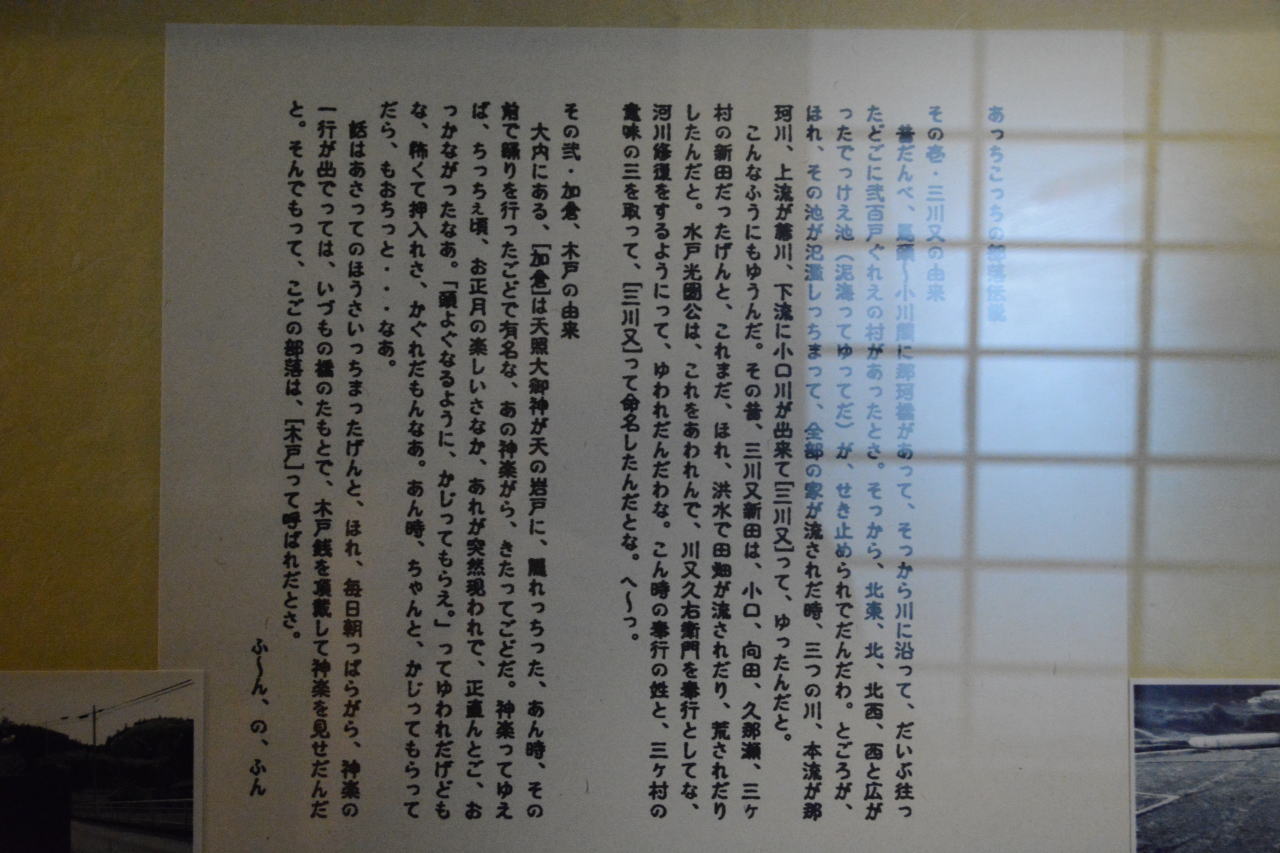 あっちこっちの部落伝説
その壱・三川又の由来
昔だんべ、馬頭～小川間に那珂橋があって、そっから川に沿って、だいぶ往っ
たどごに弐百戸ぐれえの村があったとさ。そっから、北東、北、北西、西と広が
ったでっけえ池（泥海ってゆってだ）が、せき止められでだんだわ。ところが、
ほれ、その池が氾濫しっちまって、全部の家が流されだ時、三つの川、本流が那
珂川、上流が箒川、下流に小口川が出来て[三川又]って、ゆったんだと。
こんなふうにもゆうんだ。その昔、三川又新田は、小口、向田、久那瀬、三ヶ
村の新田だったげんと、これまだ、ほれ、洪水で田畑が流されだり、荒されだり
したんだと。水戸光圀公は、これをあわれんで、川又久右衛門を奉行としてな、
河川修復をするようにって、ゆわれだんだわな。こん時の奉行の姓と、三ヶ村の
意味の三を取って、[三川又]って命名したんだとな。へ～っ。
その弐・加倉、木戸の由来
大内にある、[加倉]は天照大御神が天の岩戸に、隠れっちった、あん時、その
前で踊りを行ったごどで有名な、あの神楽がら、きたってごどだ。神楽ってゆえ
ば、ちっちぇ頃、お正月の楽しいさなか、あれが突然現われで、正直んとご、お
っかながったなあ。「頭よぐなるように、かじってもらえ。」ってゆわれだげども
な、怖くて押入れさ、かぐれだもんなあ。あん時、ちゃんと、かじってもらって
だら、もおちっと・・・なあ。
話はあさってのほうさいっちまったげんと、ほれ、毎日朝っぱらがら、神楽の
一行が出でっては、いづもの橋のたもとで、木戸銭を頂戴して神楽を見せだんだ
と。そんでもって、こごの部落は、[木戸]って呼ばれだとさ。
ふ～ん、の、ふん